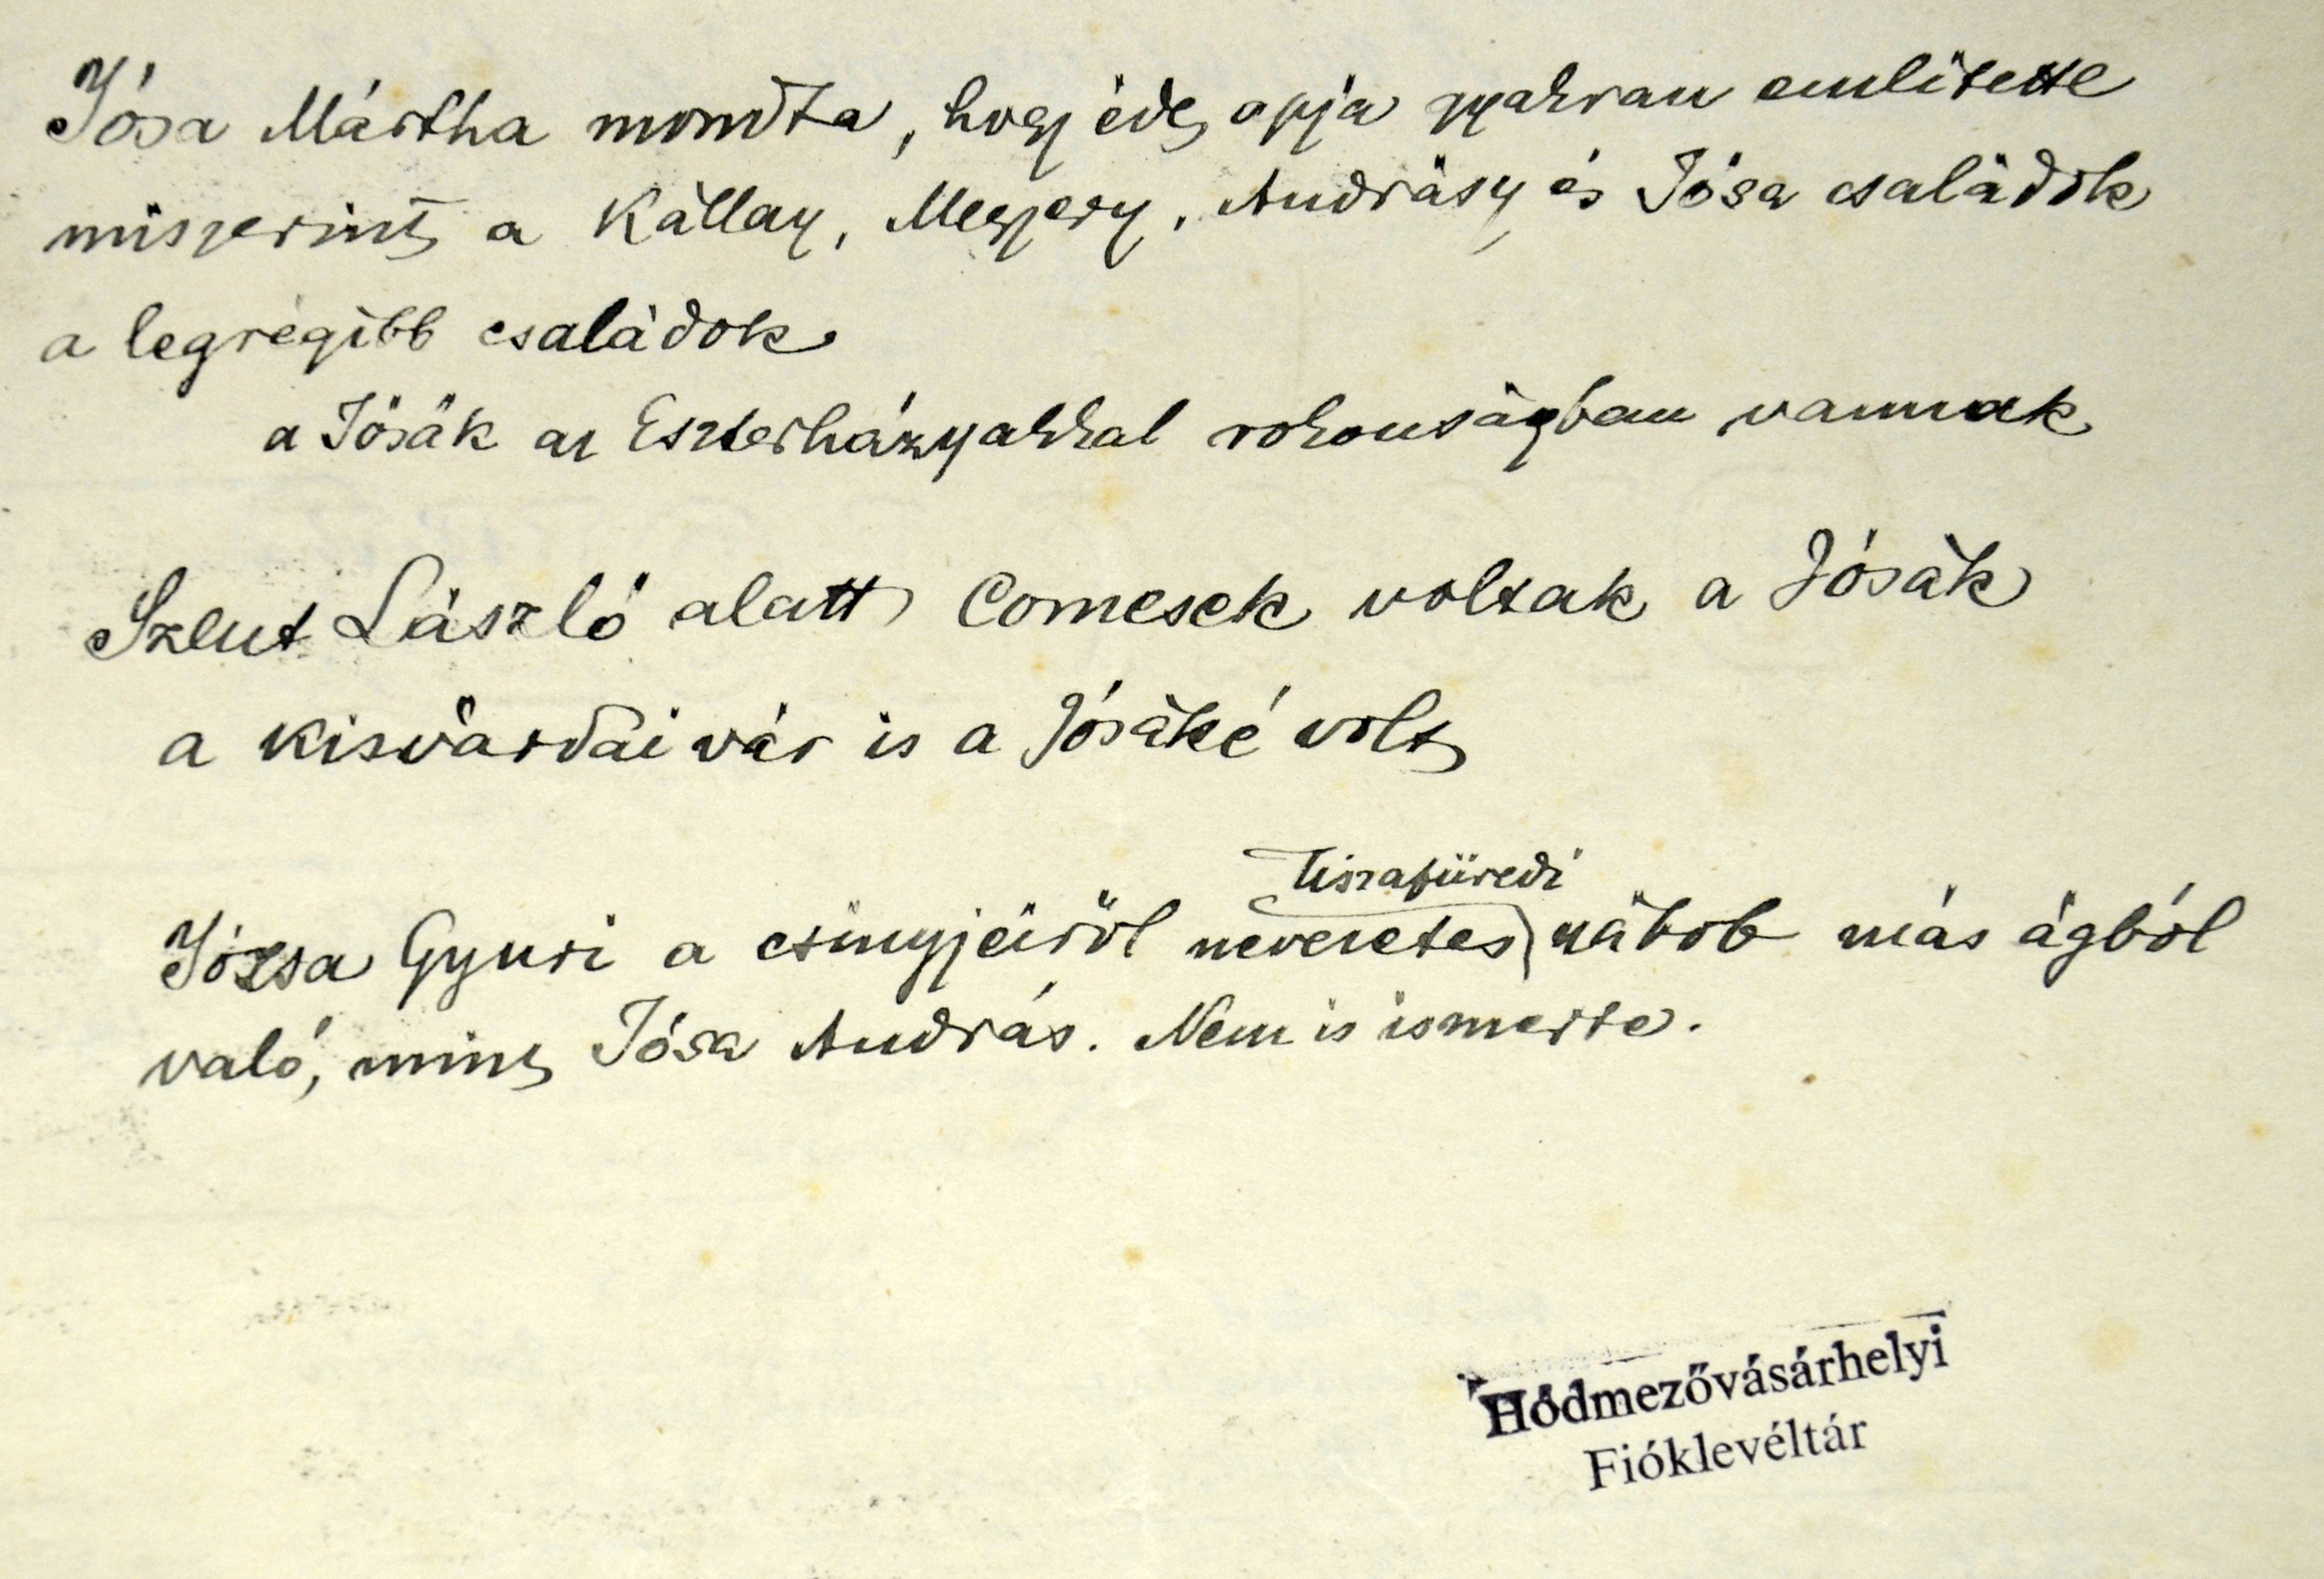 Jósa Mártha mondta, hogy édes apja gyakran emlitette
miszerint a Kállay, Megyery, Andrásy és Jósa családok
a legrégibb családok
a Jósák az Eszterházyakkal rokonságban vannak
Szent László alatt Comesek voltak a Jósák
a kisvárdai vár is a Jósáké volt
tiszafüredi
Józsa Gyuri a csinyjeiről nevezetes nábob más ágból
való, mint Jósa András. Nem is ismerte.
Hódmezővásárhelyi
Fióklevéltár